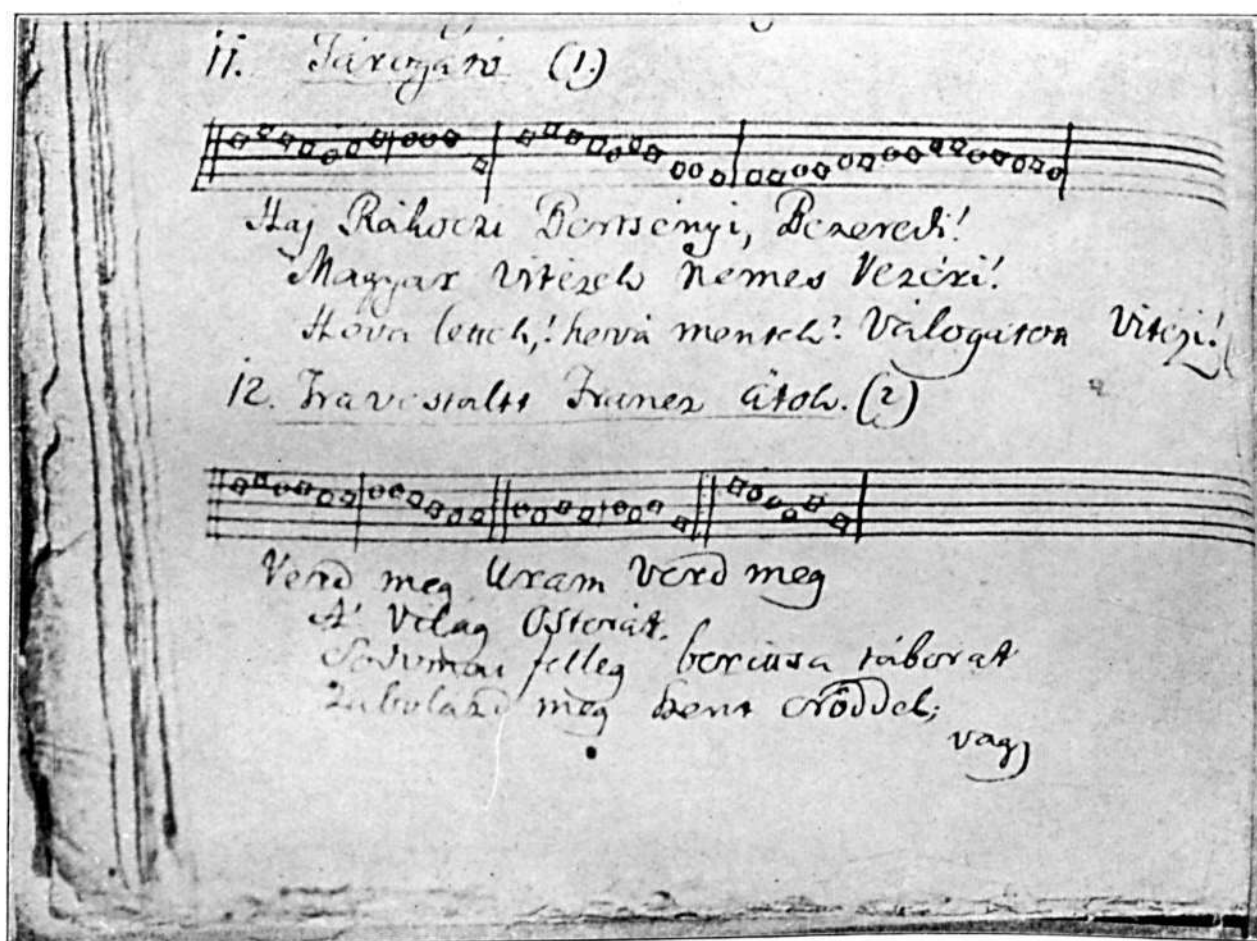 11. Tárogató (1.)
Haj Rákoczi Bertsényi, Bezeredi!
Magyar vitézek nemes Vezéri!
Hova lettek,! hová mentek? Válogatott Vitézi!
12. Travestáltt Francz átok. (2)
Verd meg Uram Verd meg
A' Világ Ostorát.
Sodomai felleg boritsa táborát
Zabolázd meg Szent erőddel;
vagy